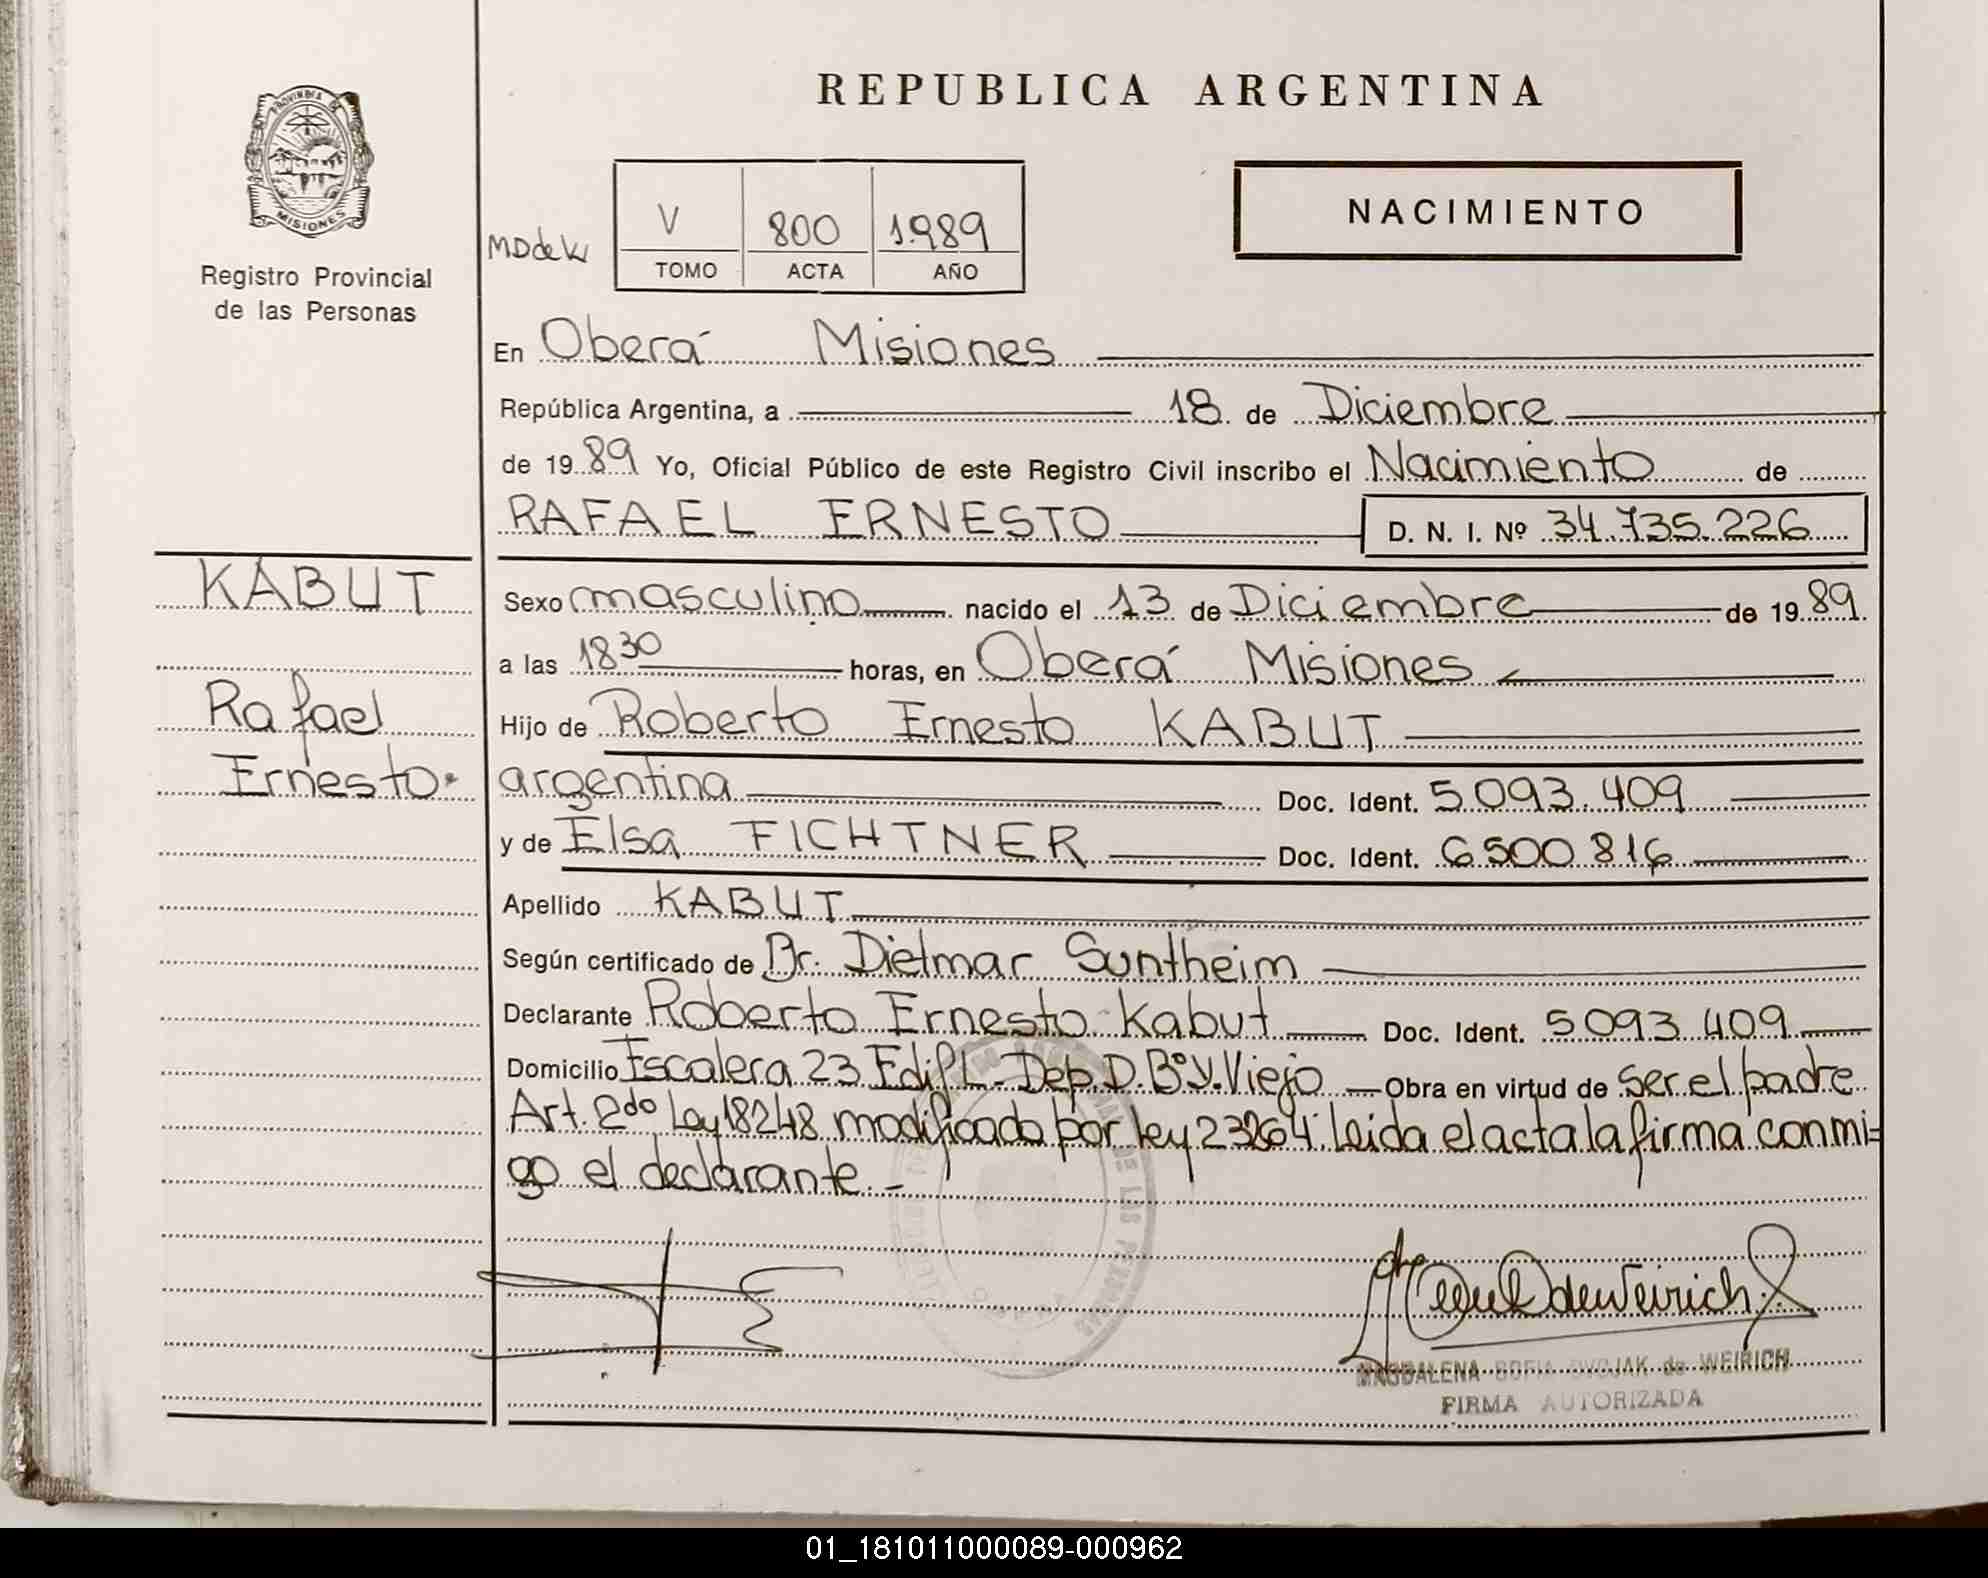 REPUBLICA ARGENTINA
PROVINCIA DE
MISIONES
Registro Provincial
de las Personas
MDdeW
V 800 1.989
TOMO ACTA AÑO
NACIMIENTO
En Oberá Misiones
República Argentina, a 18 de Diciembre
de 19 89 Yo, Oficial Público de este Registro Civil inscribo el Nacimiento de
RAFAEL ERNESTO D. N. I. Nº 34.735.226
KABUT
Rafael
Ernesto.
Sexo masculino nacido el 13 de Diciembre de 19 89
a las 18 30 horas, en Oberá Misiones
Hijo de Roberto Ernesto KABUT
argentina Doc. Ident. 5.093.409
y de Elsa FICHTNER Doc. Ident. 6500.816
Apellido KABUT
Según certificado de Dr. Dietmar Suntheim
Declarante Roberto Ernesto Kabut Doc. Ident. 5093.409
Domicilio Escalera 23 Edif L- Dep. D. Bº Y. Viejo Obra en virtud de ser el padre
Art. 2do Ley 18248 modificado por ley 23264. Leida el acta la firma conmi=
go el declarante.-
MAGDALENA SOFIA DVOJAK de WEIRICH
FIRMA AUTORIZADA
01_181011000089-000962